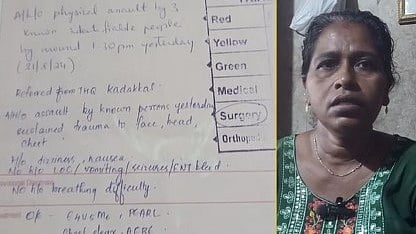 A/H/o physical assault by 3
known identifiable people
by around 1:30 pm yesterday
(21/8/24)
Referred from THQ Kadakkal.
A/H/o assault by known persons yesterday
sustained trauma to face, head,
chest.
H/o dizziness, nausea
No H/o LOC/vomiting/seizures/ENT bleed.
No H/o breathing difficulty.
O/E - E4V5M6, PEARL
Chest clear, AEBE
Red
Yellow
Green
Medical
Surgery
Orthoped